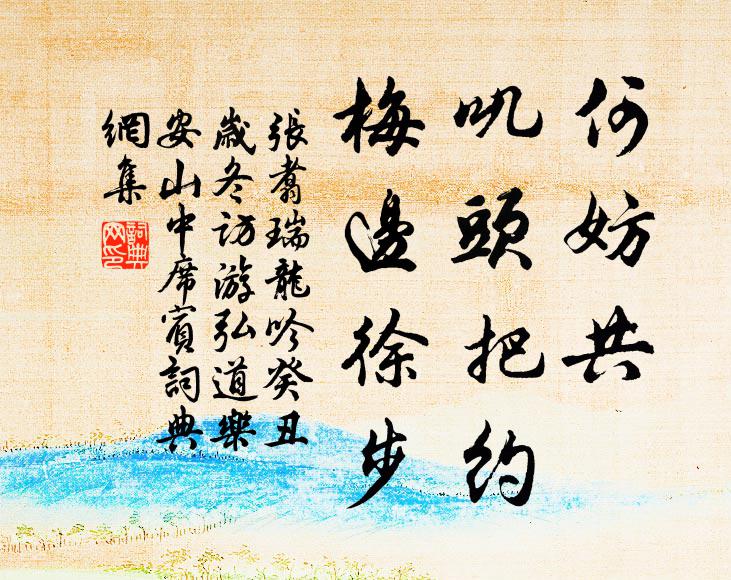 何妨共
吼頭把約
梅邊徐步
張翥瑞龍吟癸丑
歲冬訪游弘道樂
安山中席賓詞典
網集
詞典
网印